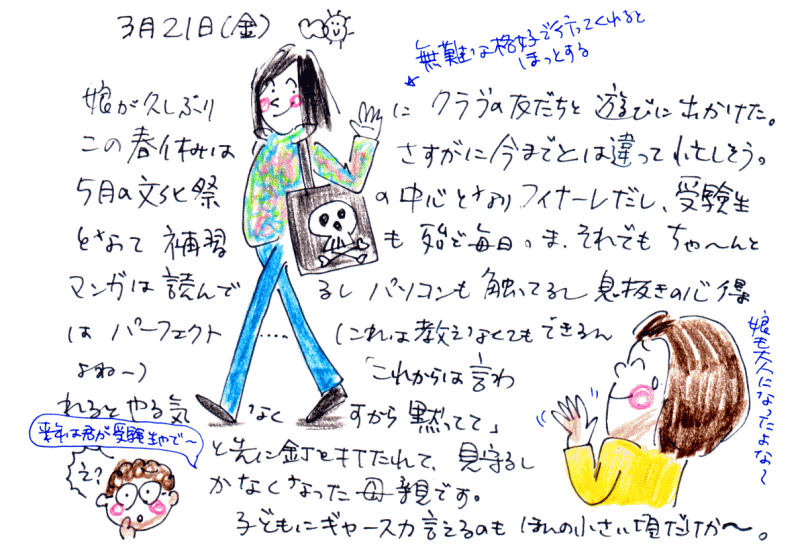 3月21日(金)
★無難な格好で行ってくれると
ほっとする
娘が久しぶりにクラブの友だちと遊びに出かけた。
この春休みはさすがに今までとは違って忙しそう。
5月の文化祭の中心となりフィナーレだし、受験生
となって補習も殆ど毎日。ま、それでもちゃ〜んと
マンガは読んでるしパソコンも触ってるし息抜きの心得
はパーフェクト……(これは教えなくてもできるん
よね〜)「これからは言わ
れるとやる気なくすから黙ってて」
と先に釘を打たれて、見守るし
かなくなった母親です。
子どもにギャースカ言えるのもほんの小さい頃だけか〜。
娘も大人になったよな〜
来年は君が受験生やで〜
え?